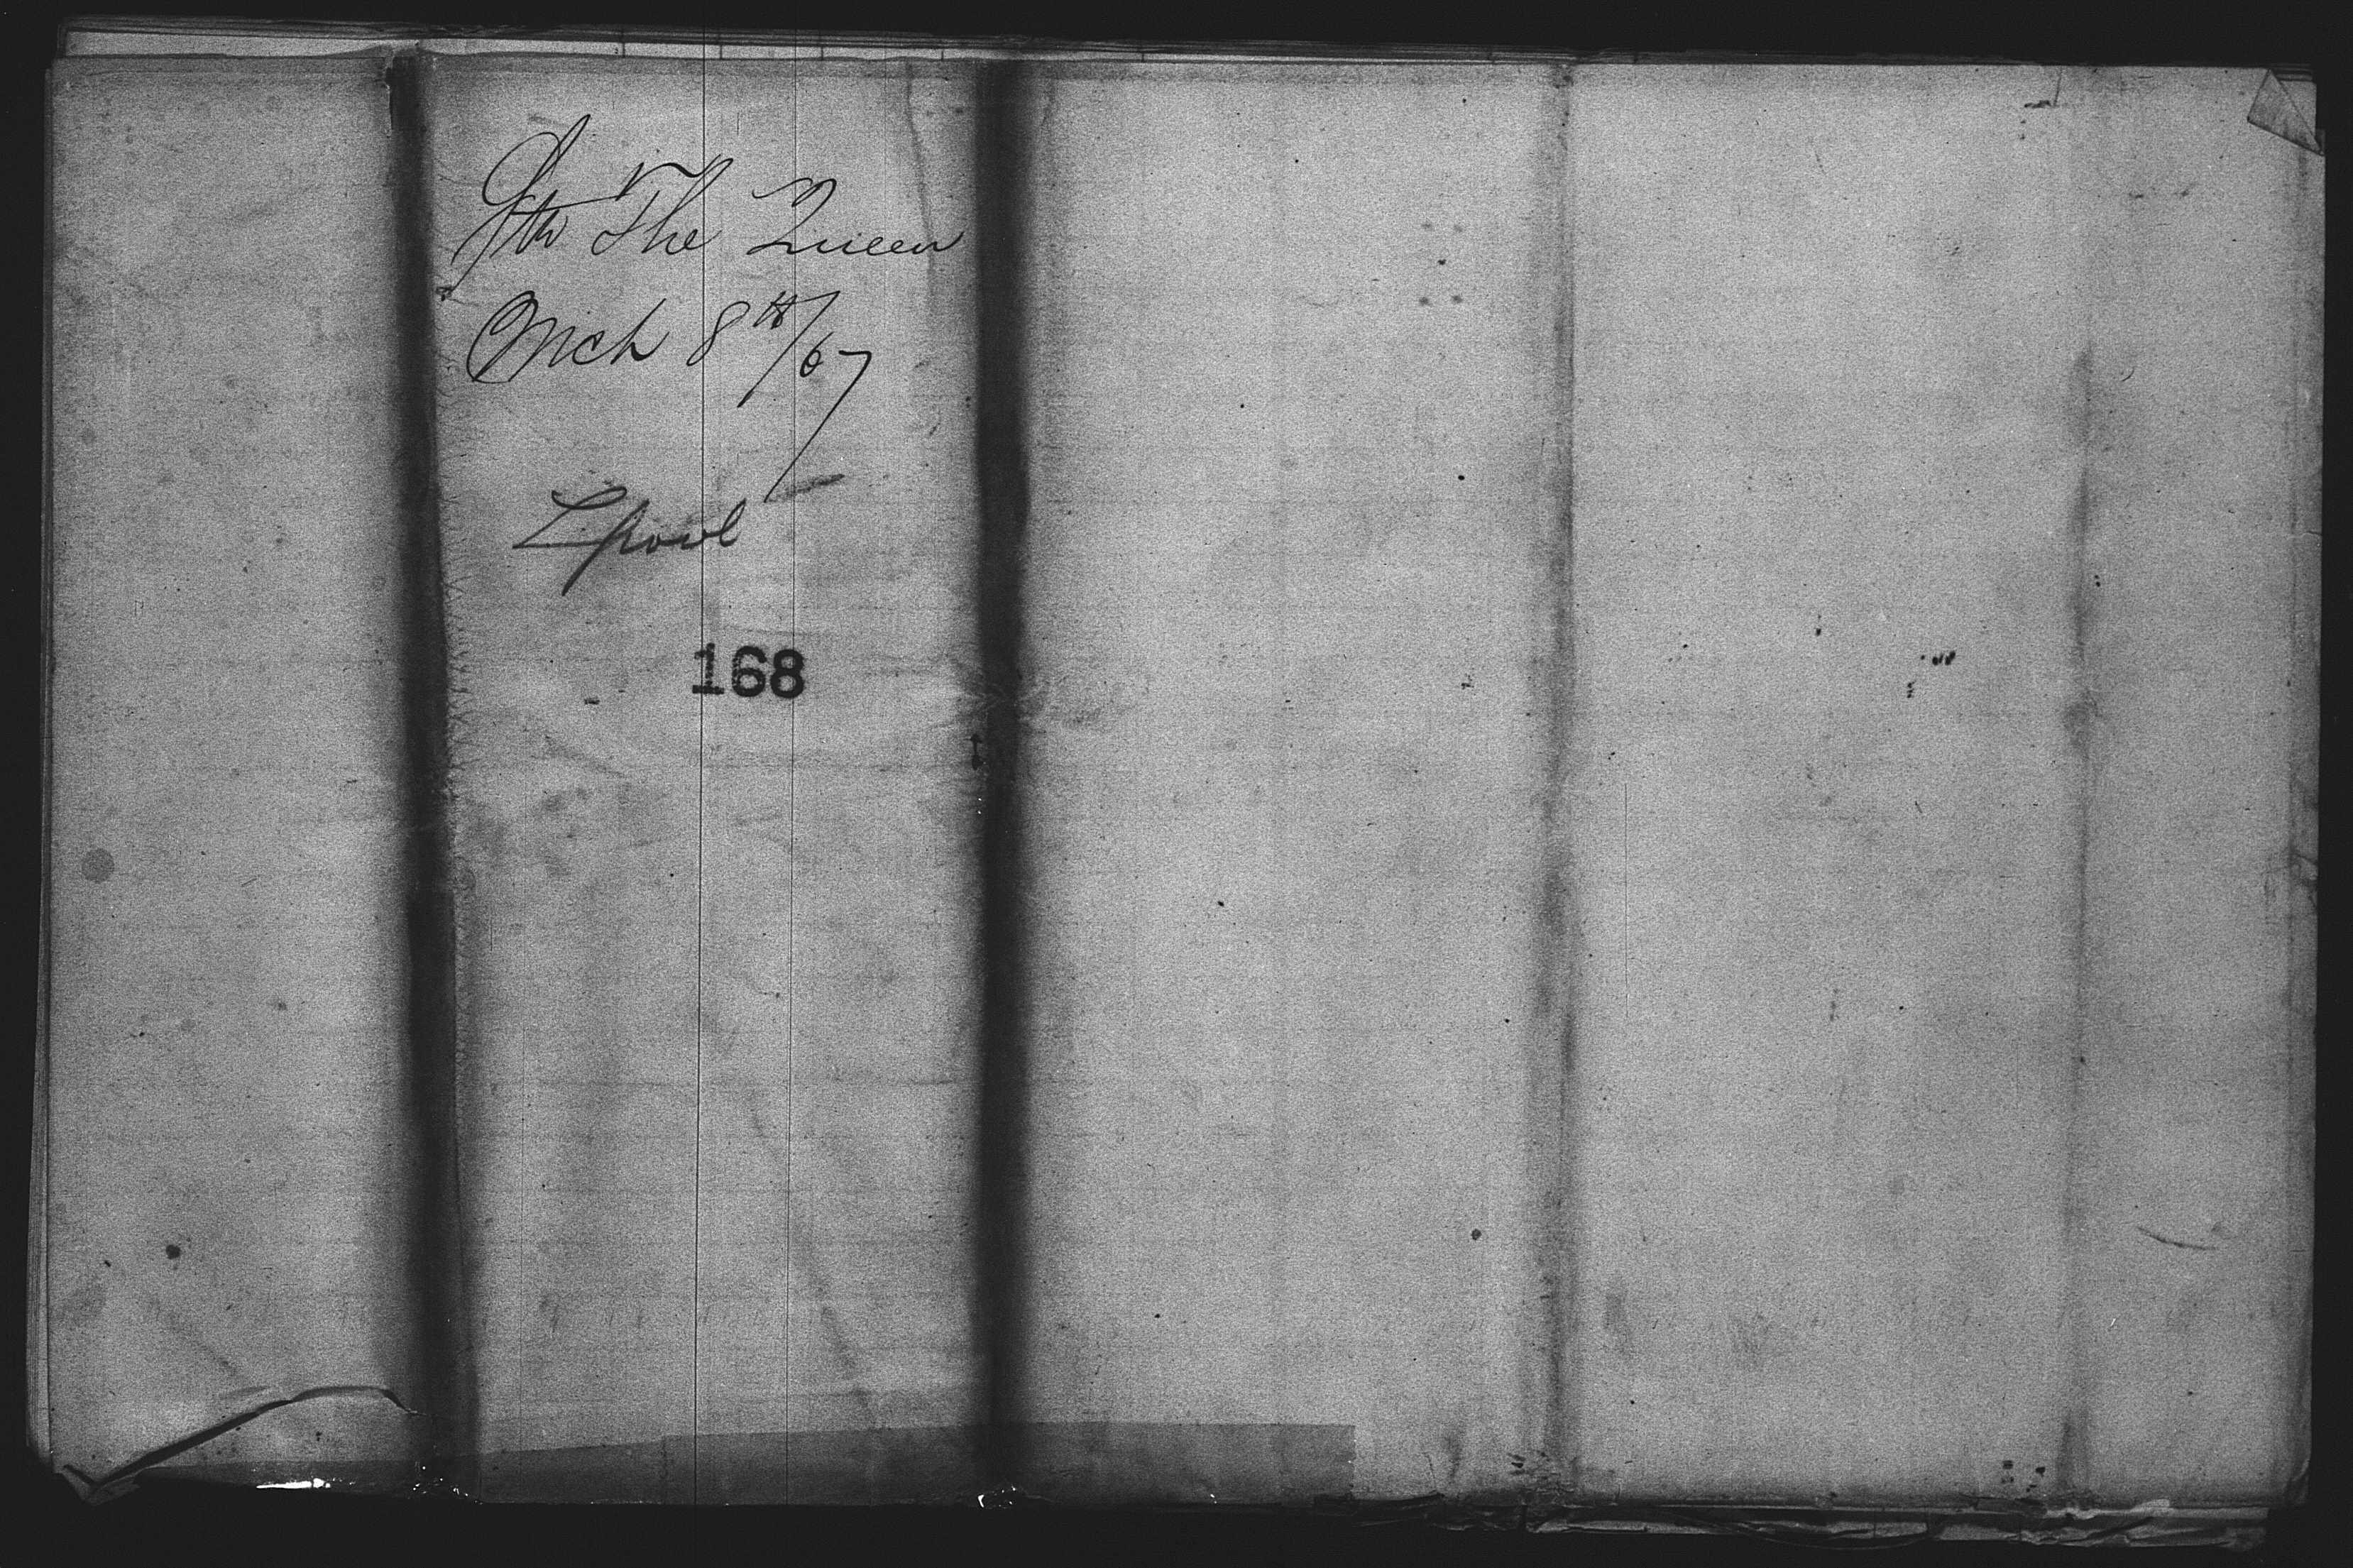 Str The Queen
Mch 8th/67
Lpool
168